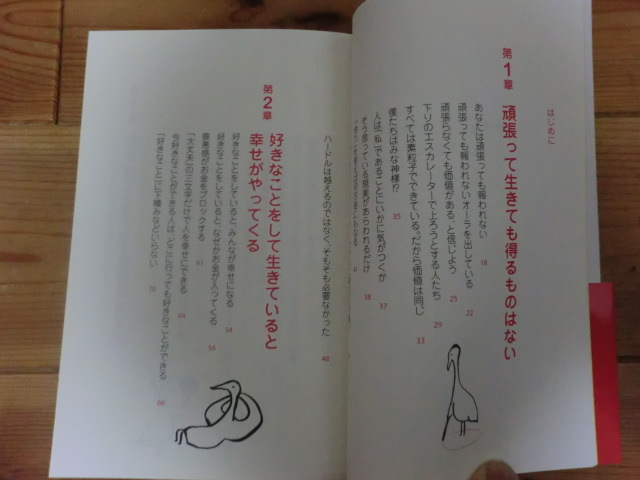 はじめに
第1章 頑張って生きても得るものはない
あなたは頑張っても報われない 18
頑張っても報われないオーラを出している 22
頑張らなくても価値がある、と信じよう 25
下りのエスカレーターで上ろうとする人たち 29
すべては素粒子でできている。だから価値は同じ 33
僕たちはみな神様!? 35
人は、「私」であることにいかに気がつくか 37
そう思っている現実があらわれるだけ 38
41
ハードルは越えるのではなく、そもそも必要なかった 48
第2章 好きなことをして生きていると
幸せがやってくる
好きなことをしていると、みんなが幸せになる 54
好きなことをしていると、なぜかお金が入ってくる 56
罪悪感がお金をブロックする 61
「大丈夫」の三文字だけで人を幸せにできる 64
今好きなことができる人は、どこに行っても好きなことができる 66
「好きなこと」に下積みなどいらない 70